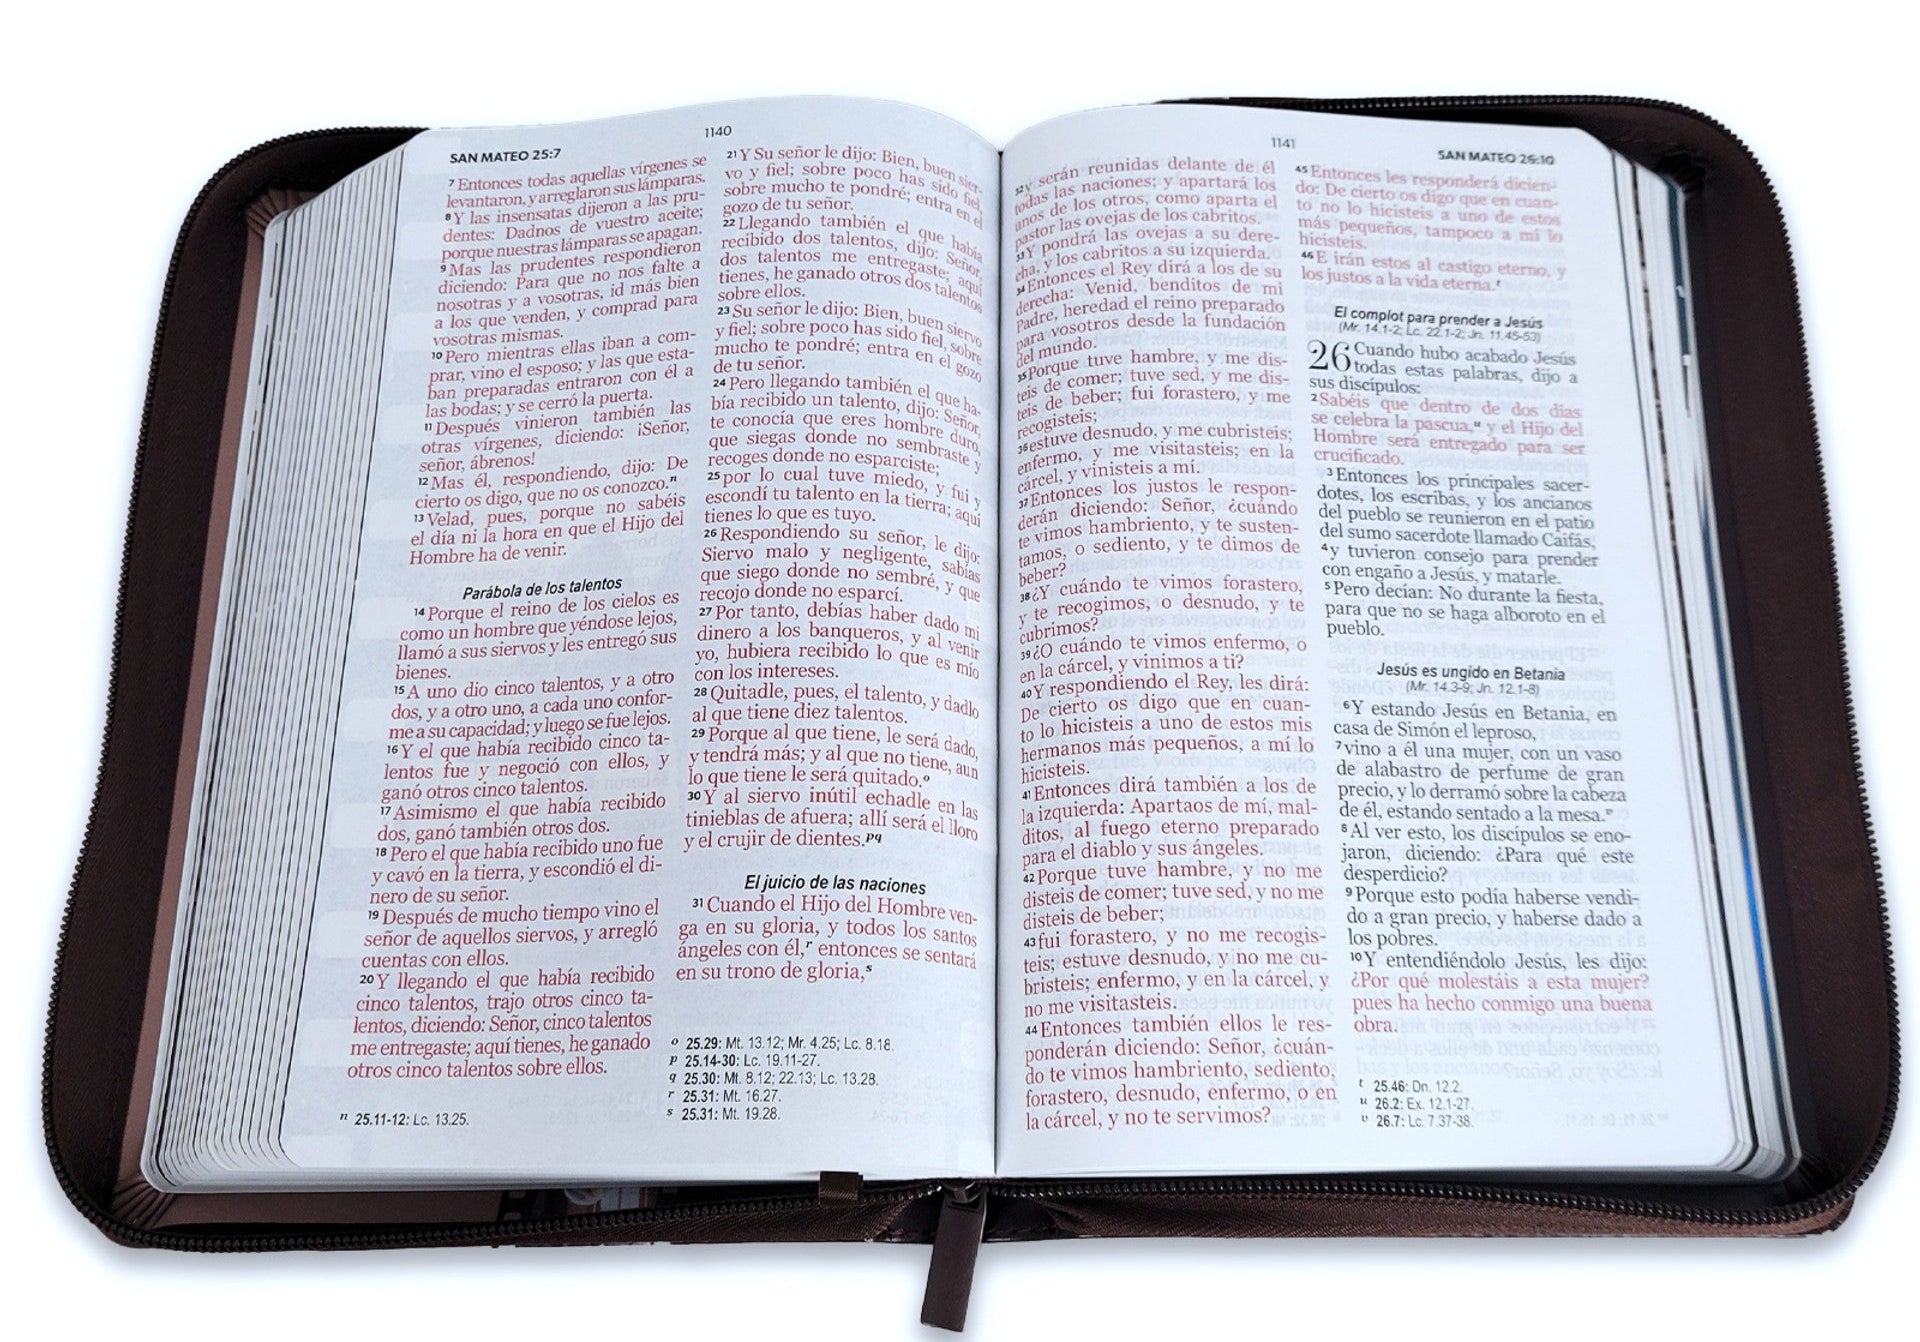 1140
SAN MATEO 25:7
7 Entonces todas aquellas vírgenes se
levantaron, y arreglaron sus lámparas.
8 Y las insensatas dijeron a las pru-
dentes: Dadnos de vuestro aceite;
porque nuestras lámparas se apagan.
9 Mas las prudentes respondieron
diciendo: Para que no nos falte a
nosotras y a vosotras, id más bien
a los que venden, y comprad para
vosotras mismas.
10 Pero mientras ellas iban a com-
prar, vino el esposo; y las que esta-
ban preparadas entraron con él a
las bodas; y se cerró la puerta.
11 Después vinieron también las
otras vírgenes, diciendo: ¡Señor,
señor, ábrenos!
12 Mas él, respondiendo, dijo: De
cierto os digo, que no os conozco.n
13 Velad, pues, porque no sabéis
el día ni la hora en que el Hijo del
Hombre ha de venir.
Parábola de los talentos
14 Porque el reino de los cielos es
como un hombre que yéndose lejos,
llamó a sus siervos y les entregó sus
bienes.
15 A uno dio cinco talentos, y a otro
dos, y a otro uno, a cada uno confor-
me a su capacidad; y luego se fue lejos.
16 Y el que había recibido cinco ta-
lentos fue y negoció con ellos, y
ganó otros cinco talentos.
17 Asimismo el que había recibido
dos, ganó también otros dos.
18 Pero el que había recibido uno fue
y cavó en la tierra, y escondió el di-
nero de su señor.
19 Después de mucho tiempo vino el
señor de aquellos siervos, y arregló
cuentas con ellos.
20 Y llegando el que había recibido
cinco talentos, trajo otros cinco ta-
lentos, diciendo: Señor, cinco talentos
me entregaste; aquí tienes, he ganado
otros cinco talentos sobre ellos.
n 25.11-12: Lc. 13.25.
21 Y Su señor le dijo: Bien, buen sier-
vo y fiel; sobre poco has sido fiel,
sobre mucho te pondré; entra en el
gozo de tu señor.
22 Llegando también el que había
recibido dos talentos, dijo: Señor,
dos talentos me entregaste; aquí
tienes, he ganado otros dos talentos
sobre ellos.
23 Su señor le dijo: Bien, buen siervo
y fiel; sobre poco has sido fiel, sobre
mucho te pondré; entra en el gozo
de tu señor.
24 Pero llegando también el que ha-
bía recibido un talento, dijo: Señor,
te conocía que eres hombre duro,
que siegas donde no sembraste y
recoges donde no esparciste;
25 por lo cual tuve miedo, y fui y
escondí tu talento en la tierra; aquí
tienes lo que es tuyo.
26 Respondiendo su señor, le dijo:
Siervo malo y negligente, sabías
que siego donde no sembré, y que
recojo donde no esparcí.
27 Por tanto, debías haber dado mi
dinero a los banqueros, y al venir
yo, hubiera recibido lo que es mío
con los intereses.
28 Quitadle, pues, el talento, y dadlo
al que tiene diez talentos.
29 Porque al que tiene, le será dado,
y tendrá más; y al que no tiene, aun
lo que tiene le será quitado.o
30 Y al siervo inútil echadle en las
tinieblas de afuera; allí será el lloro
y el crujir de dientes.pq
El juicio de las naciones
31 Cuando el Hijo del Hombre ven-
ga en su gloria, y todos los santos
ángeles con él,r entonces se sentará
en su trono de gloria,s
o 25.29: Mt. 13.12; Mr. 4.25; Lc. 8.18.
p 25.14-30: Lc. 19.11-27.
q 25.30: Mt. 8.12; 22.13; Lc. 13.28.
r 25.31: Mt. 16.27.
s 25.31: Mt. 19.28.
1141
SAN MATEO 26:10
32 y serán reunidas delante de él
todas las naciones; y apartará los
unos de los otros, como aparta el
pastor las ovejas de los cabritos.
33 Y pondrá las ovejas a su dere-
cha, y los cabritos a su izquierda.
34 Entonces el Rey dirá a los de su
derecha: Venid, benditos de mi
Padre, heredad el reino preparado
para vosotros desde la fundación
del mundo.
35 Porque tuve hambre, y me dis-
teis de comer; tuve sed, y me dis-
teis de beber; fui forastero, y me
recogisteis;
36 estuve desnudo, y me cubristeis;
enfermo, y me visitasteis; en la
cárcel, y vinisteis a mí.
37 Entonces los justos le respon-
derán diciendo: Señor, ¿cuándo
te vimos hambriento, y te susten-
tamos, o sediento, y te dimos de
beber?
38 ¿Y cuándo te vimos forastero,
y te recogimos, o desnudo, y te
cubrimos?
39 ¿O cuándo te vimos enfermo, o
en la cárcel, y vinimos a ti?
40 Y respondiendo el Rey, les dirá:
De cierto os digo que en cuan-
to lo hicisteis a uno de estos mis
hermanos más pequeños, a mí lo
hicisteis.
41 Entonces dirá también a los de
la izquierda: Apartaos de mí, mal-
ditos, al fuego eterno preparado
para el diablo y sus ángeles.
42 Porque tuve hambre, y no me
disteis de comer; tuve sed, y no me
disteis de beber;
43 fui forastero, y no me recogis-
teis; estuve desnudo, y no me cu-
bristeis; enfermo, y en la cárcel, y
no me visitasteis.
44 Entonces también ellos le res-
ponderán diciendo: Señor, ¿cuán-
do te vimos hambriento, sediento,
forastero, desnudo, enfermo, o en
la cárcel, y no te servimos?
45 Entonces les responderá dicien-
do: De cierto os digo que en cuan-
to no lo hicisteis a uno de estos
más pequeños, tampoco a mí lo
hicisteis.
46 E irán estos al castigo eterno, y
los justos a la vida eterna.t
El complot para prender a Jesús
(Mr. 14.1-2; Lc. 22.1-2; Jn. 11.45-53)
26 Cuando hubo acabado Jesús
todas estas palabras, dijo a
sus discípulos:
2 Sabéis que dentro de dos días
se celebra la pascua,u y el Hijo del
Hombre será entregado para ser
crucificado.
3 Entonces los principales sacer-
dotes, los escribas, y los ancianos
del pueblo se reunieron en el patio
del sumo sacerdote llamado Caifás,
4 y tuvieron consejo para prender
con engaño a Jesús, y matarle.
5 Pero decían: No durante la fiesta,
para que no se haga alboroto en el
pueblo.
Jesús es ungido en Betania
(Mr. 14.3-9; Jn. 12.1-8)
6 Y estando Jesús en Betania, en
casa de Simón el leproso,
7 vino a él una mujer, con un vaso
de alabastro de perfume de gran
precio, y lo derramó sobre la cabeza
de él, estando sentado a la mesa.v
8 Al ver esto, los discípulos se eno-
jaron, diciendo: ¿Para qué este
desperdicio?
9 Porque esto podía haberse vendi-
do a gran precio, y haberse dado a
los pobres.
10 Y entendiéndolo Jesús, les dijo:
¿Por qué molestáis a esta mujer?
pues ha hecho conmigo una buena
obra.
t 25.46: Dn. 12.2.
u 26.2: Ex. 12.1-27.
v 26.7: Lc. 7.37-38.